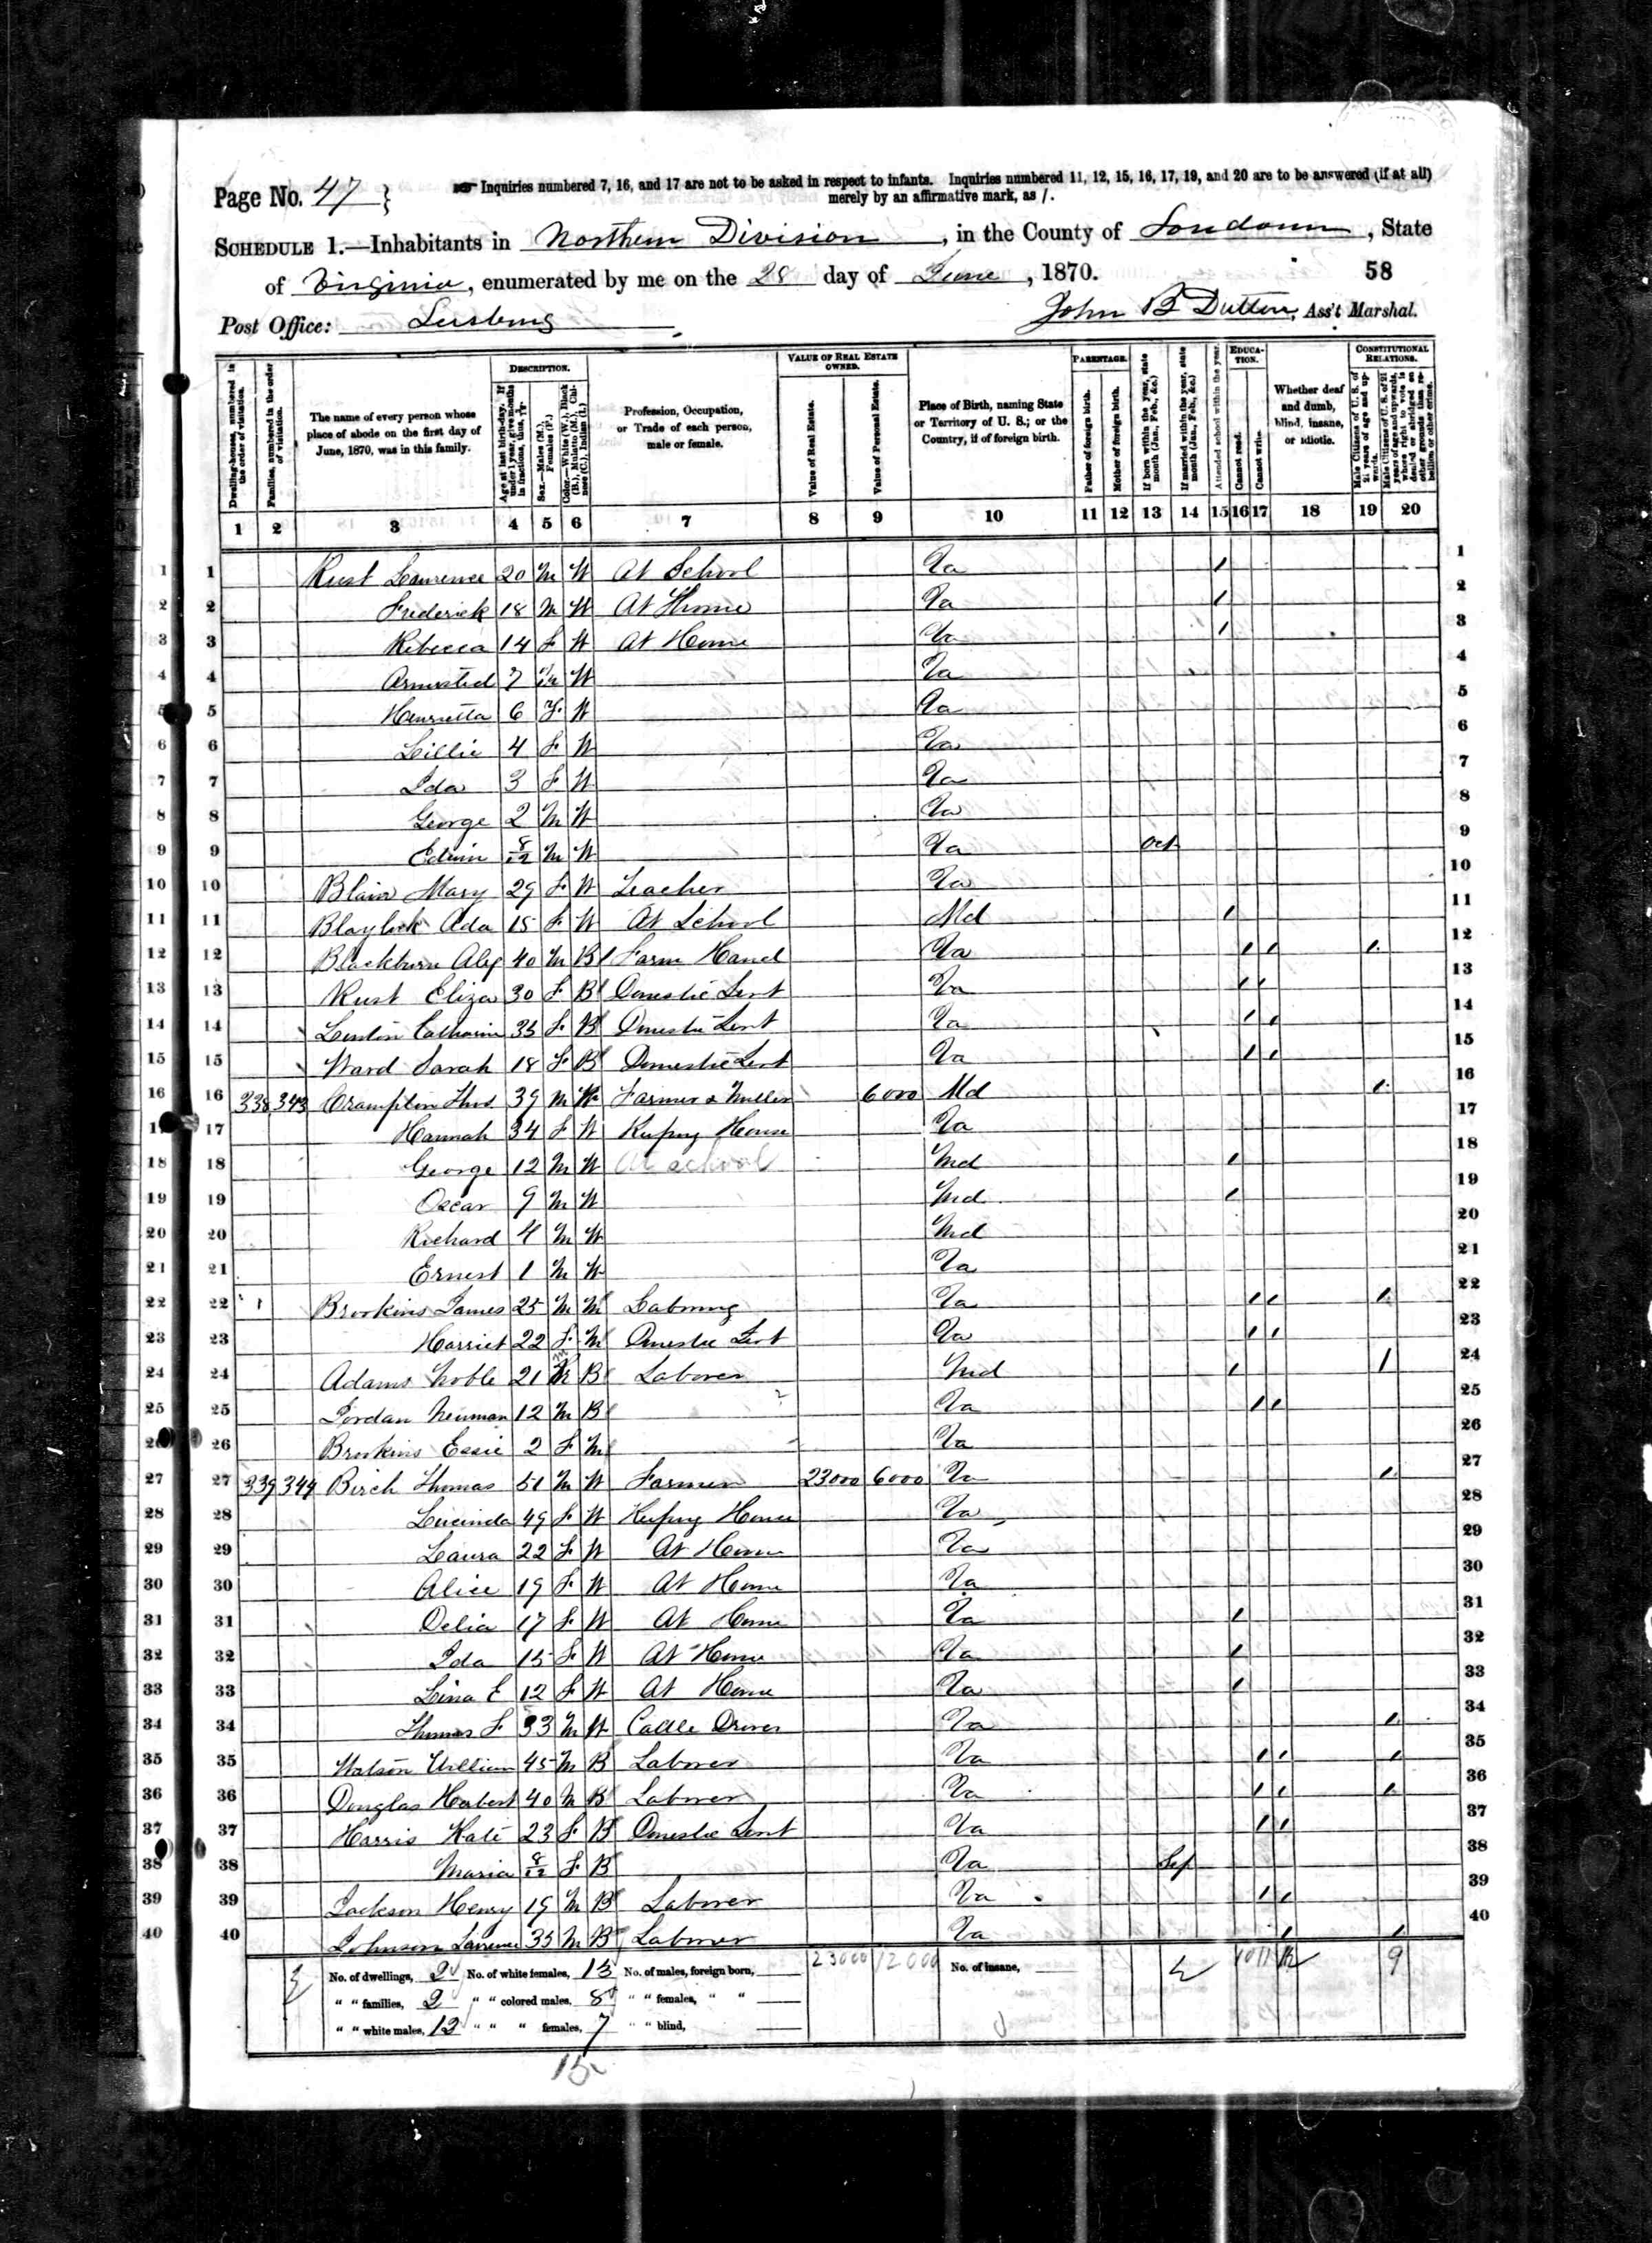 Page No. 47 }
Inquiries numbered 7, 16, and 17 are not to be asked in respect to infants. Inquiries numbered 11, 12, 15, 16, 17, 19, and 20 are to be answered (if at all)
merely by an affirmative mark, as /.
SCHEDULE 1.—Inhabitants in Northern Division, in the County of Loudoun, State
of Virginia, enumerated by me on the 28 day of June, 1870. 58
Post Office: Leesburg John B Dutton, Ass't Marshal.
Dwelling-houses, numbered in the order of visitation.
Families, numbered in the order of visitation.
The name of every person whose place of abode on the first day of June, 1870, was in this family.
DESCRIPTION.
Age at last birth-day. If under 1 year, give months in fractions, thus, 3/12
Sex.—Males (M.), Females (F.)
Color.—White (W.), Black (B.), Mulatto (M.), Chinese (C.), Indian (I.)
Profession, Occupation, or Trade of each person, male or female.
VALUE OF REAL ESTATE OWNED.
Value of Real Estate.
Value of Personal Estate.
Place of Birth, naming State or Territory of U. S.; or the Country, if of foreign birth.
PARENTAGE.
Father of foreign birth.
Mother of foreign birth.
If born within the year, state month (Jan., Feb., &c.)
If married within the year, state month (Jan., Feb., &c.)
Attended school within the year.
EDUCATION.
Cannot read.
Cannot write.
Whether deaf and dumb, blind, insane, or idiotic.
CONSTITUTIONAL RELATIONS.
Male Citizens of U. S. of 21 years of age and upwards.
Male Citizens of U. S. of 21 years of age and upwards, whose right to vote is denied or abridged on other grounds than rebellion or other crime.
1 2 3 4 5 6 7 8 9 10 11 12 13 14 15 16 17 18 19 20
1 Rust Lawrence 20 M W At School Va / 1
2 Frederick 18 M W At Home Va / 2
3 Rebecca 14 F W At Home Va / 3
4 Armisted 7 M W Va 4
5 Henrietta 6 F W Va 5
6 Lillie 4 F W Va 6
7 Ida 3 F W Va 7
8 George 2 M W Va 8
9 Edwin 8/12 M W Va Oct 9
10 Blair Mary 29 F W Teacher Va 10
11 Blaylock Ada 15 F W At School Md / 11
12 Blackburn Alex 40 M B Farm Hand Va / / / 12
13 Rust Eliza 30 F B Domestic Servt Va / / 13
14 Catharine 35 F B Domestic Servt Va / / 14
15 Ward Sarah 18 F B Domestic Servt Va / / 15
16 338 343 Crampton Thos. 39 M W Farmer & Miller 6000 Md / 16
17 Hannah 34 F W Keeping House Va 17
18 George 12 M W At School Md / 18
19 Oscar 9 M W Md / 19
20 Richard 4 M W Md 20
21 Ernest 1 M W Va 21
22 Brookins James 25 M M Laboring Va / / / 22
23 Harriet 22 F M Domestic Servt Va / / 23
24 Adams Noble 21 M B Laborer Md / / 24
25 Jordan Neuman 12 M B Va / / 25
26 Brookins Essie 2 F M Va 26
27 339 344 Birch Thomas 51 M W Farmer 23000 6000 Va / 27
28 Lucinda 49 F W Keeping House Va 28
29 Laura 22 F W At Home Va 29
30 Alice 19 F W At Home Va 30
31 Delia 17 F W At Home Va / 31
32 Ida 15 F W At Home Va / 32
33 Lina E 12 F W At Home Va / 33
34 Thomas F. 33 M W Cattle Drover Va / 34
35 Watson William 45 M B Laborer Va / / / 35
36 Douglas Herbert 40 M B Laborer Va / / / 36
37 Harris Kate 23 F B Domestic Servt Va / / 37
38 Maria 8/12 F B Va Sep 38
39 Jackson Henry 19 M B Laborer Va / / 39
40 Johnson Lawrence 35 M B Laborer Va / / 40
No. of dwellings, 2 No. of white females, 13 No. of males, foreign born, 23000 12000 No. of insane, 2 10 11 12 9
" " families, 2 " " colored males, 8 " " females, " "
" " white males, 12 " " " females, 7 " " blind,
15